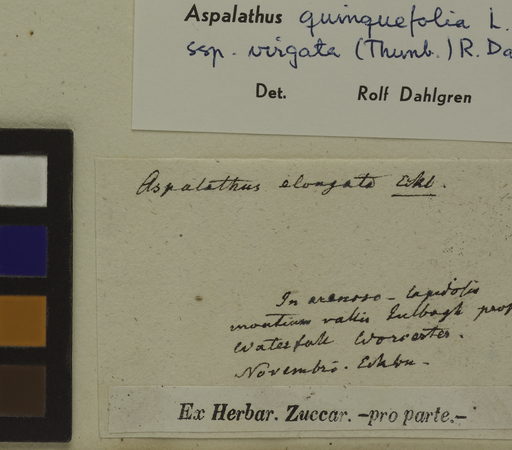 Aspalathus quinquefolia L.
ssp. virgata (Thunb.) R. Da
Det. Rolf Dahlgren
Aspalathus elongata Eckl.
In arenoso-lapidosis
montium vallis Tulbagh prop
Waterfall Worcester.
Novembri. Ecklon
Ex Herbar. Zuccar. -pro parte.-